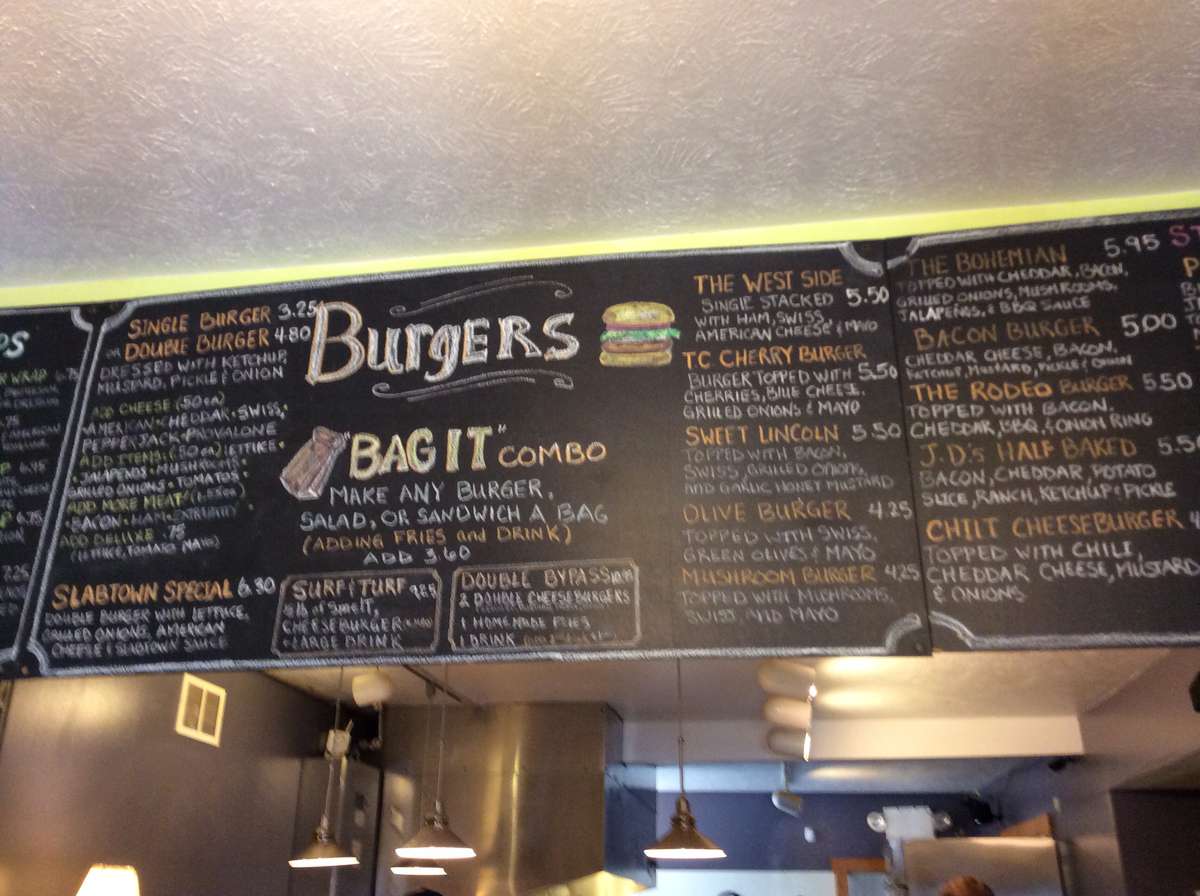 SINGLE BURGER 3.25
OR DOUBLE BURGER 4.80
DRESSED WITH KETCHUP,
MUSTARD, PICKLE & ONION
ADD CHEESE (.50 ea)
AMERICAN • CHEDDAR • SWISS,
PEPPERJACK • PROVALONE
ADD ITEMS: (.50 ea) LETTUCE •
• JALAPENOS • MUSHROOMS •
GRILLED ONIONS • TOMATOS •
ADD MORE MEAT
• BACON • HAM •
ADD DELUXE .75
(LETTUCE, TOMATO, MAYO)
SLABTOWN SPECIAL 6.30
DOUBLE BURGER WITH LETTUCE,
GRILLED ONIONS, AMERICAN
CHEESE & SLABTOWN SAUCE
BURGERS
"BAG IT" COMBO
MAKE ANY BURGER,
SALAD, OR SANDWICH A BAG
(ADDING FRIES and DRINK)
ADD 3.60
SURF & TURF 9.25
of SMELT,
CHEESEBURGER
LARGE DRINK
DOUBLE BYPASS
2 DOUBLE CHEESEBURGERS
1 HOMEMADE FRIES
1 DRINK
THE WEST SIDE
SINGLE STACKED 5.50
WITH HAM, SWISS,
AMERICAN CHEESE & MAYO
TC CHERRY BURGER
BURGER TOPPED WITH 5.50
CHERRIES, BLUE CHEESE,
GRILLED ONIONS & MAYO
SWEET LINCOLN 5.50
TOPPED WITH BACON,
SWISS, GRILLED ONIONS,
AND GARLIC HONEY MUSTARD
OLIVE BURGER 4.25
TOPPED WITH SWISS,
GREEN OLIVES & MAYO
MUSHROOM BURGER 4.25
TOPPED WITH MUSHROOMS,
SWISS, AND MAYO
THE BOHEMIAN 5.95
TOPPED WITH CHEDDAR, BACON,
GRILLED ONIONS, MUSHROOMS,
JALAPEÑOS, & BBQ SAUCE
BACON BURGER 5.00
CHEDDAR CHEESE, BACON,
KETCHUP, MUSTARD, PICKLE & ONION
THE RODEO BURGER 5.50
TOPPED WITH BACON,
CHEDDAR, BBQ, & ONION RING
J.D's HALF BAKED 5.5
BACON, CHEDDAR, POTATO
SLICE, RANCH, KETCHUP & PICKLE
CHILI CHEESEBURGER
TOPPED WITH CHILI,
CHEDDAR CHEESE, MUSTARD
& ONIONS